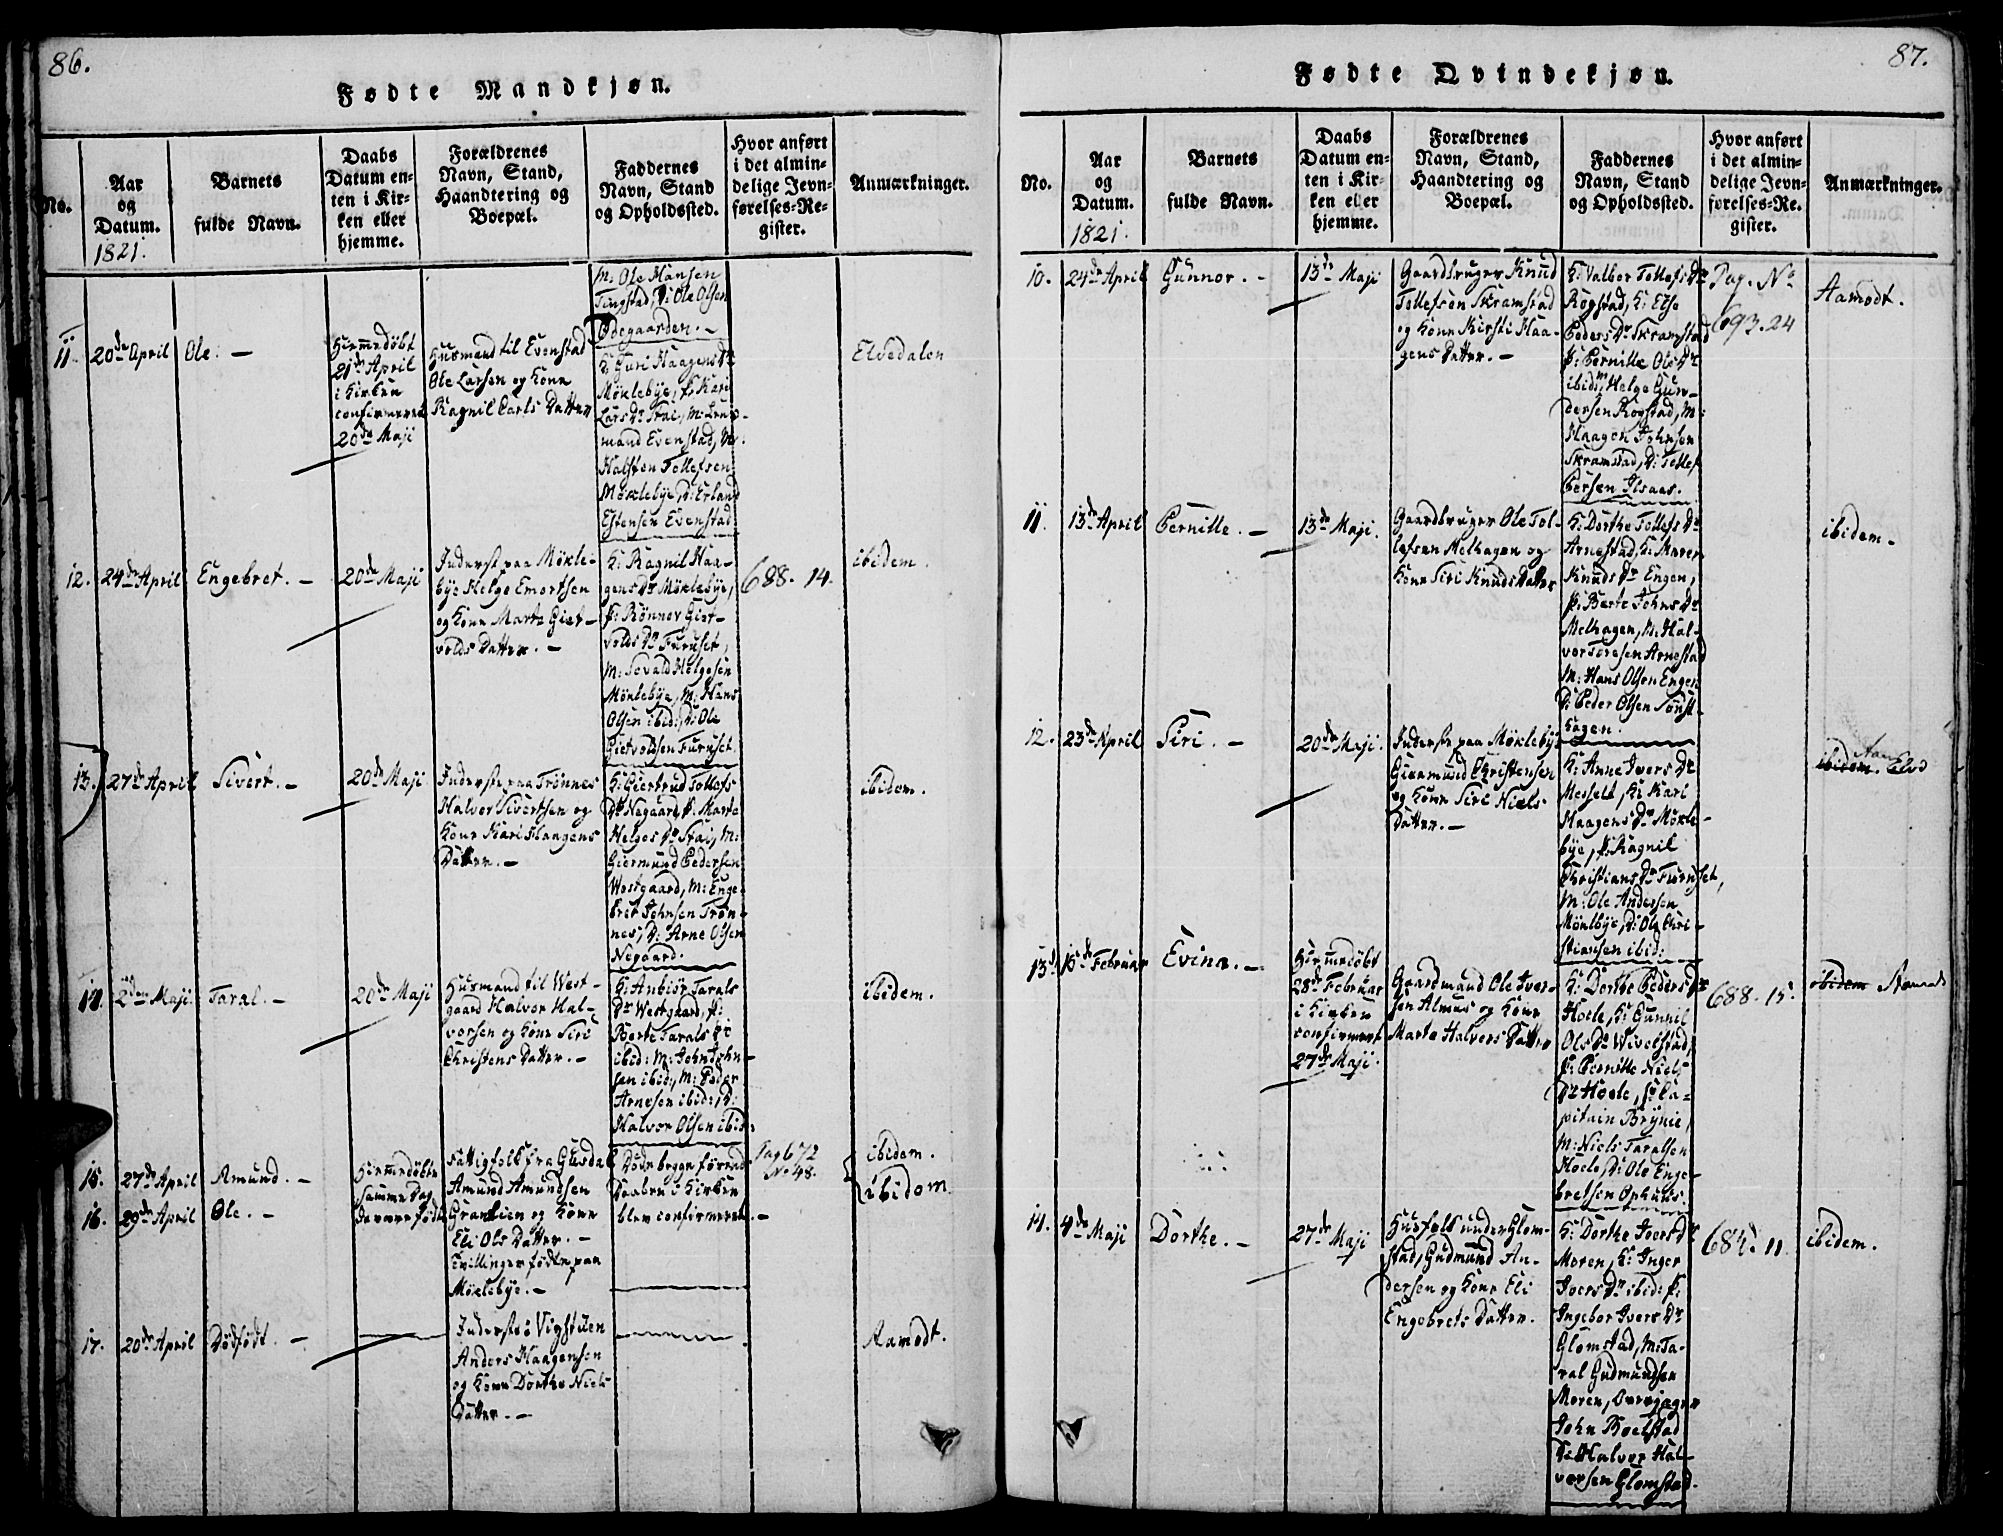 86.
Fødte Mandkjøn.
No.
Aar
og
Datum.
1821.
Barnets
fulde Navn.
Daabs
Datum en-
ten i Kir-
ken eller
hjemme.
Forældrenes
Navn, Stand,
Haandtering og
Boepæl.
Faddernes
Navn, Stand
og Opholdssted.
Hvor anført
i det almin-
delige Jevn-
førelses-Re-
gister.
Anmærkninger.
M: Ole Hansen
Tingstad, D: Ole Olsen
Ödegaarden. -
11.
20de April
Ole. -
Hiemmedöbt
21de April
i Kirken
confirmeret
20de Maji
Huusmand til Evenstad
Ole Larsen og Kone
Ragnil Carls Datter
K: Guri Haagens Dr
Möklebÿe, P: Kari
Lars Dr Strai, M:
mand Evenstad, M:
Halsten Tollefsen
Möklebÿe, D: Erland
Estensen Evenstad
Elvedalen
12.
24de April
Engebret. -
20de Maji
Inderste paa Mökle-
bÿe Helge Emortsen
og Kone Marte Giet-
volds Datter. -
K: Ragnil Haa-
gens Dr Möklebÿe,
P: Rönnov Giet-
volds Dr Furuset,
M: Sevald Helgesen
Möklebÿe, M: Hans
Olsen ibid:, D: Ole
Gietvoldsen Furuset.
688. 14.
ibidem.
13.
27de April
Sivert. -
20de Maji
Inderste paa Trönnes
Halvor Sivertsen og
Kone Kari Haagens
Datter. -
K: Giertrud Tollefs
Dr Negaard, P: Marte
Helges Dr Strai, M:
Giermund Pedersen
Westgaard, M: Enge-
bret Johnsen Trön-
nes, D: Arne Olsen
Negaard.
ibidem.
14.
2den Maji.
Taral. -
20de Maji
Huusmand til West-
gaard Halvor Hal-
vorsen og Kone Siri
Christens Datter. -
K: Anbiör Tarals
Dr Westgaard, P:
Berte Tarals Dr
ibid: M: John John-
sen ibid:, M: Peder
Arnesen ibid:, D:
Halvor Olsen ibid:
ibidem.
15.
27de April
Amund. -
16.
29de April
Ole. -
Hiemmedöbte
samme Dag
de vare födte
Fattigfolk fra Gusdal
Amund Amundsen
Granlien og Kone
Eli Ols Datter. -
Tvillinger födte paa
Möklebÿe. -
Döde begge förend
Daaben i Kirken
blev confirmeret. -
Pag 672
No 48.
ibidem.
ibidem
17.
20de April
Dödfödt. -
Inderste i Vigstuen
Anders Haagensen
og Kone Dorthe Niels
Datter. -
Aamodt.
87.
Fødte Qvindekjøn.
No.
Aar
og
Datum.
1821.
Barnets
fulde Navn.
Daabs
Datum en-
ten i Kir-
ken eller
hjemme.
Forældrenes
Navn, Stand,
Haandtering og
Boepæl.
Faddernes
Navn, Stand
og Opholdssted.
Hvor anført
i det almin-
delige Jevn-
førelses-Re-
gister.
Anmærkninger.
10.
24de April
Gunnor. -
13de Maji
Gaardbruger Knud
Tollefsen Skramstad
og Kone Kirsti Haa-
gens Datter. -
K: Valbor Tollefs Dr
Rogstad, K: Else
Peders Dr Skramstad
P: Pernille Ols Dr
ibid:, M: Helge Gun-
dersen Rogstad, M:
Haagen Johnsen
Skramstad, D: Tollef
Persen Ilsaas.
Pag. No
693. 24
Aamodt.
11.
13de April
Pernille. -
13de Maji.
Gaardbruger Ole Tol-
lefsen Melhagen og
Kone Siri Knuds Datter
K: Dorthe Tollefs Dr
Arnestad, K: Maren
Knuds Dr Engen,
P: Berte Johns Dr
Melhagen, M: Hal-
vor Toresen Arnestad
M: Hans Olsen Engen
D: Peder Olsen Tönst-
hagen.
ibidem.
12.
23de April
Siri. -
20de Maji.
Inderste paa Möklebÿe
Giermund Christensen
og Kone Siri Niels
Datter. -
K: Anne Ivers Dr
Messelt, K: Kari
Haagens Dr Mökle-
bÿe, P: Ragnil
Christians Dr Furuset,
M: Ole Andersen
Möklbÿe, D: Ole Chri-
stiansen ibid:
ibidem. Elvd
13.
15de Februar
Evina. -
Hiemmedöbt
28de Februar
i Kirken
confirmeret
27de Maji.
Gaardmand Ole Iver-
sen Almus og Kone
Marte Halvors Datter
K: Dorthe Peders Dr
Hoele, K: Gunnil
Ols Dr Wivelstad,
P: Pernille Niels
Dr Hoele, Hr Ca-
pitain Brÿnie,
M: Niels Taralsen
Hoele, D: Ole Enge-
bretsen Ophuus.
688. 15.
ibidem Aamodt
14.
4de Maji
Dorthe. -
27de Maji
Huusfolk under Glom-
stad, Gudmund An-
dersen og Kone Eli
Engebrets Datter.
K: Dorthe Ivers Dr
Moren, K: Inger
Ivers Dr ibid: P:
Ingebor Ivers Dr
Glomstad, M: Ta-
ral Gudmundsen
Moren, Overjæger
John Roelstad
D: Halvor Hal-
vorsen Glomstad.
684. 11
ibidem.